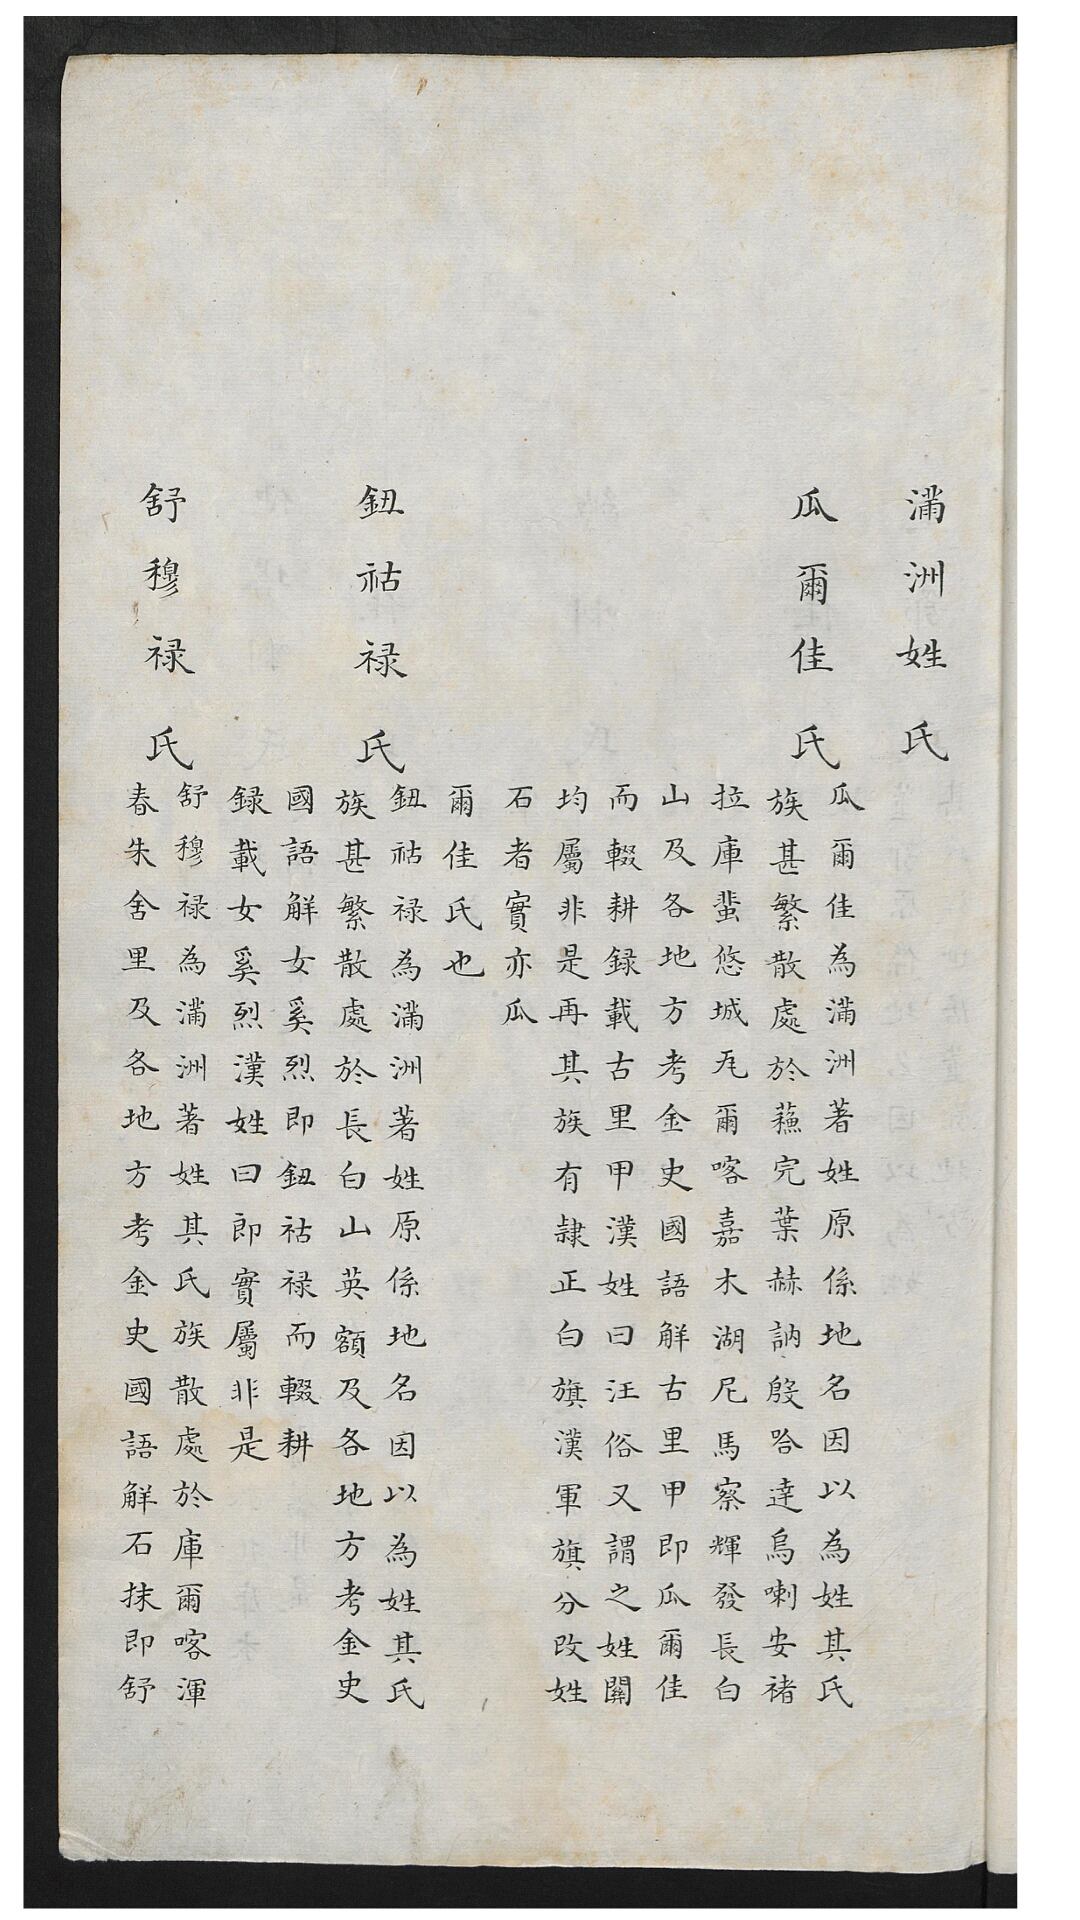 滿洲姓氏
瓜爾佳氏
瓜爾佳為滿洲著姓原係地名因以為姓其氏
族甚繁散處於蘓完葉赫訥殷哈達烏喇安褚
拉庫蜚悠城尾爾喀嘉木湖尼馬察輝發長白
山及各地方考金史國語解古里甲即瓜爾佳
而輟耕録載古里甲漢姓曰汪俗又謂之姓關
均屬非是再其族有隷正白旗漢軍旗分改姓
石者實亦瓜
爾佳氏也
鈕祜禄氏
鈕祜禄為滿洲著姓原係地名因以為姓其氏
族甚繁散處於長白山英額及各地方考金史
國語解女奚烈即鈕祜禄而輟耕
録載女奚烈漢姓曰郎實屬非是
舒穆禄氏
舒穆禄為滿洲著姓其氏族散處於庫爾喀渾
春朱舍里及各地方考金史國語解石抹即舒